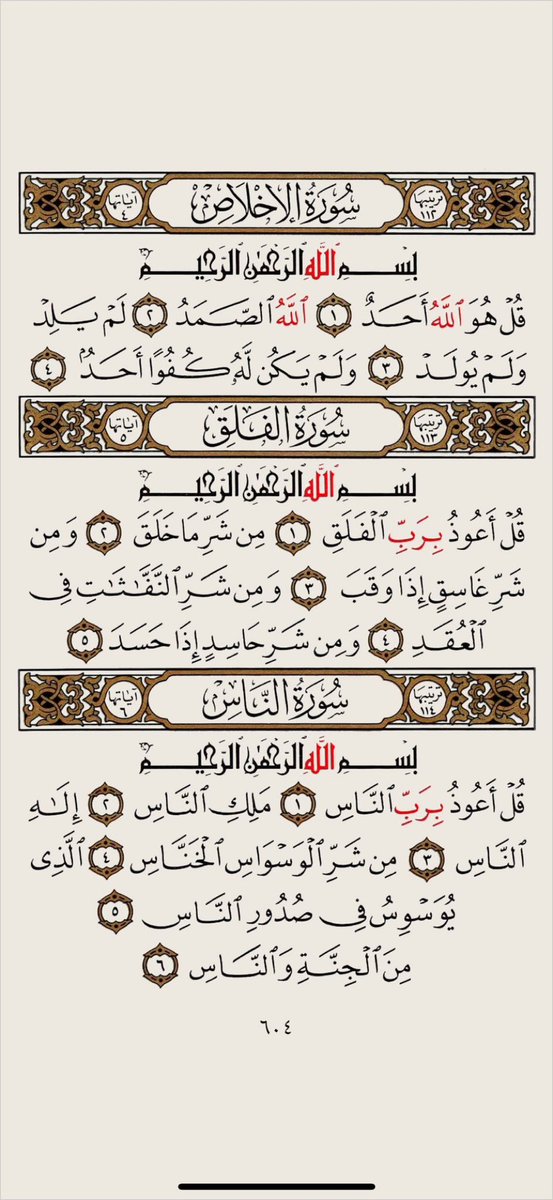 ترتيبها ١١٢ سُورَةُ الإِخْلَاصِ آياتها ٤
بِسْمِ ٱللَّهِ ٱلرَّحْمَٰنِ ٱلرَّحِيمِ
قُلْ هُوَ ٱللَّهُ أَحَدٌ ١ ٱللَّهُ ٱلصَّمَدُ ٢ لَمْ يَلِدْ
وَلَمْ يُولَدْ ٣ وَلَمْ يَكُن لَّهُۥ كُفُوًا أَحَدٌۢ ٤
ترتيبها ١١٣ سُورَةُ الفَلَقِ آياتها ٥
بِسْمِ ٱللَّهِ ٱلرَّحْمَٰنِ ٱلرَّحِيمِ
قُلْ أَعُوذُ بِرَبِّ ٱلْفَلَقِ ١ مِن شَرِّ مَا خَلَقَ ٢ وَمِن
شَرِّ غَاسِقٍ إِذَا وَقَبَ ٣ وَمِن شَرِّ ٱلنَّفَّٰثَٰتِ فِى
ٱلْعُقَدِ ٤ وَمِن شَرِّ حَاسِدٍ إِذَا حَسَدَ ٥
ترتيبها ١١٤ سُورَةُ النَّاسِ آياتها ٦
بِسْمِ ٱللَّهِ ٱلرَّحْمَٰنِ ٱلرَّحِيمِ
قُلْ أَعُوذُ بِرَبِّ ٱلنَّاسِ ١ مَلِكِ ٱلنَّاسِ ٢ إِلَٰهِ
ٱلنَّاسِ ٣ مِن شَرِّ ٱلْوَسْوَاسِ ٱلْخَنَّاسِ ٤ ٱلَّذِى
يُوَسْوِسُ فِى صُدُورِ ٱلنَّاسِ ٥
مِنَ ٱلْجِنَّةِ وَٱلنَّاسِ ٦
٦٠٤